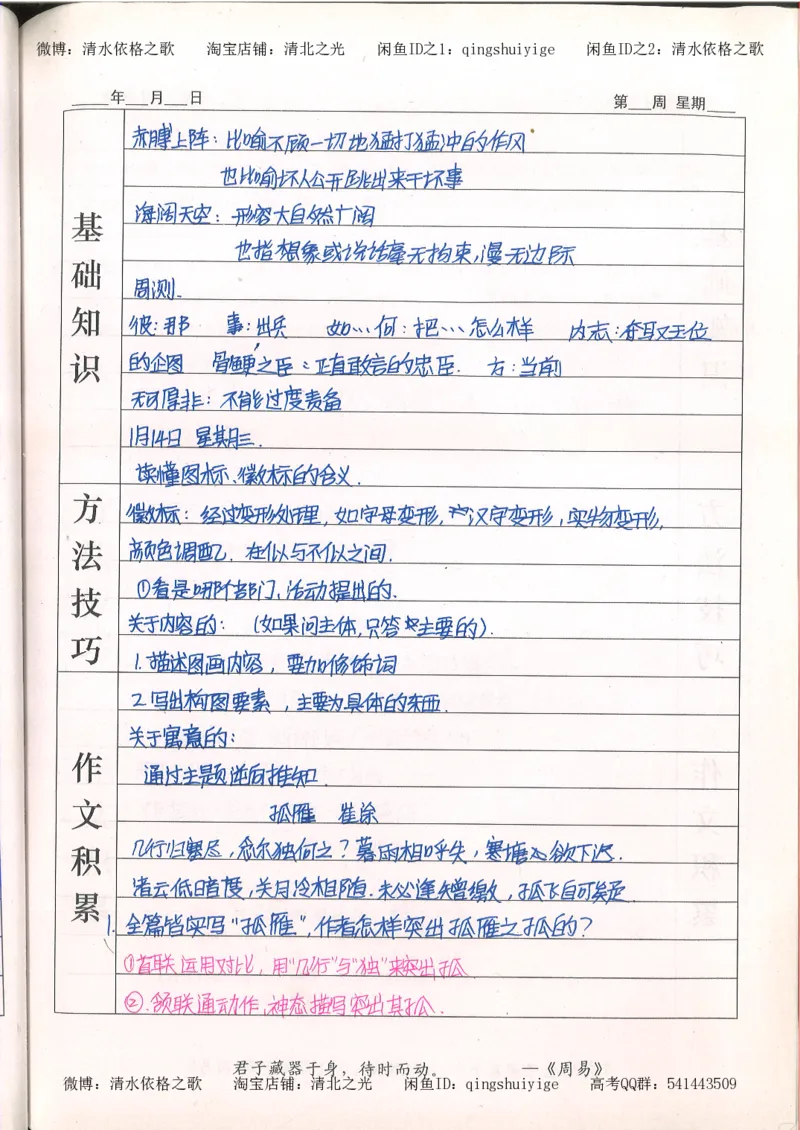 微博：清水依格之歌 淘宝店铺：清北之光 闲鱼ID之1：qingshuiyige 闲鱼ID之2：清水依格之歌
____年___月___日 第___周 星期____
基础知识
赤膊上阵：比喻不顾一切地猛打猛冲的作风
也比喻坏人公开跳出来干坏事
海阔天空：形容大自然广阔
也指想象或说话毫无拘束，漫无边际
周测.
彼：那 事：出兵 如…何：把…怎么样 内志：夺取王位
的企图 骨鲠之臣：正直敢言的忠臣. 方：当前
无可厚非：不能过度责备
1月14日 星期三.
读懂图标、徽标的含义.
方法技巧
徽标：经过变形处理，如字母变形，汉字变形，实物变形，
颜色调配. 在似与不似之间.
①看是哪个部门，活动提出的.
关于内容的：（如果问主体，只答主要的）.
1.描述图画内容，要加修饰词
作文积累
2.写出构图要素，主要为具体的东西.
关于寓意的：
通过主题逆向推知.
孤雁 崔涂
几行归塞尽，念尔独何之？暮雨相呼失，寒塘欲下迟.
渚云低暗度，关月冷相随.未必逢矰缴，孤飞自可疑.
1.全篇皆实写“孤雁”，作者怎样突出孤雁之孤的？
①首联运用对比，用“几行”与“独”来突出孤
②.颔联通动作，神态描写突出其孤.
君子藏器于身，待时而动。 —《周易》
微博：清水依格之歌 淘宝店铺：清北之光 闲鱼ID：qingshuiyige 高考QQ群：541443509